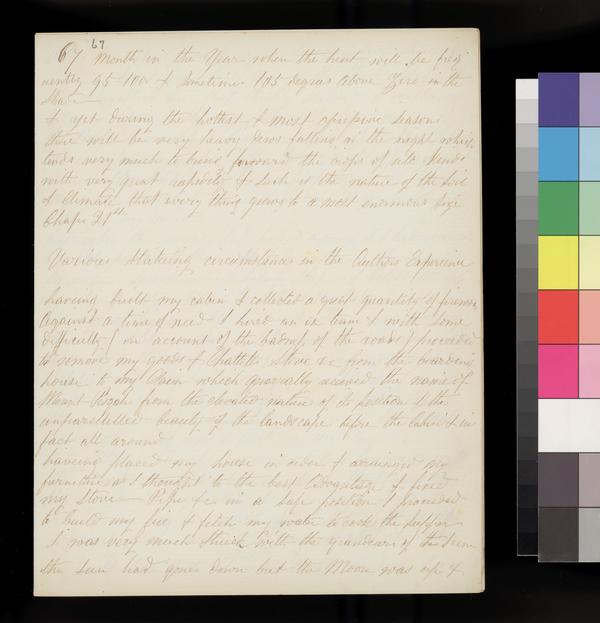 67 67 Month in the Year when the heat will be freq
uently 95-100 & Sometimes 105 degrees above Zero in the
Shade
& yet during the hottest & most oppressive season
there will be very heavy dews falling in the night which
tends very much to bring forward the crops of all kinds
with very great rapidity & Such is the nature of the Soil
& Climate that every thing grows to a most enormous size
Chapr 21st
Various Striking circumstances in the Authors Experience
having built my cabin & collected a great quantity of firewood
Against a time of need I hired an ox team & with some
difficulty (on account of the badness of the roads) proceeded
to remove my goods & Chattels Stove &c from the boarding
house to my Claim which generally received the name of
Mount from the elevated nature of its position & the
unparallelled beauty of the landscape before the Cabin & in
fact all around
having placed my house in order & arrainged my
furniture as I thought to the best & fixed
my Stove Pipe &c in a safe position I proceeded
to build my fire & fetch my water to cook the supper
I was very much Struck with the grandeur of the Scene
the Sun had gone down but the Moon was up &